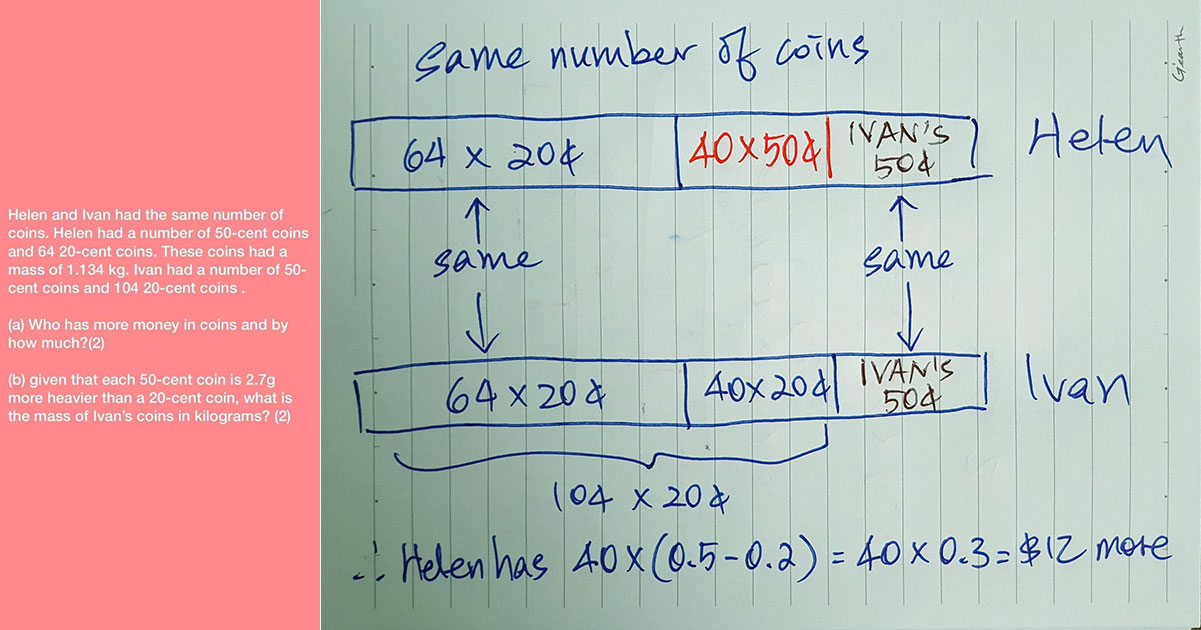 Helen and Ivan had the same number of
coins. Helen had a number of 50-cent coins
and 64 20-cent coins. These coins had a
mass of 1.134 kg. Ivan had a number of 50-
cent coins and 104 20-cent coins .
(a) Who has more money in coins and by
how much?(2)
(b) given that each 50-cent coin is 2.7g
more heavier than a 20-cent coin, what is
the mass of Ivan's coins in kilograms? (2)
same number of coins
64 x 20¢ 40x50¢ IVAN'S
50¢
Helen
same same
64 x 20¢ 40x20¢ IVAN'S
50¢
Ivan
104 x 20¢
∴ Helen has 40x(0.5-0.2) = 40 x 0.3 = $12 more